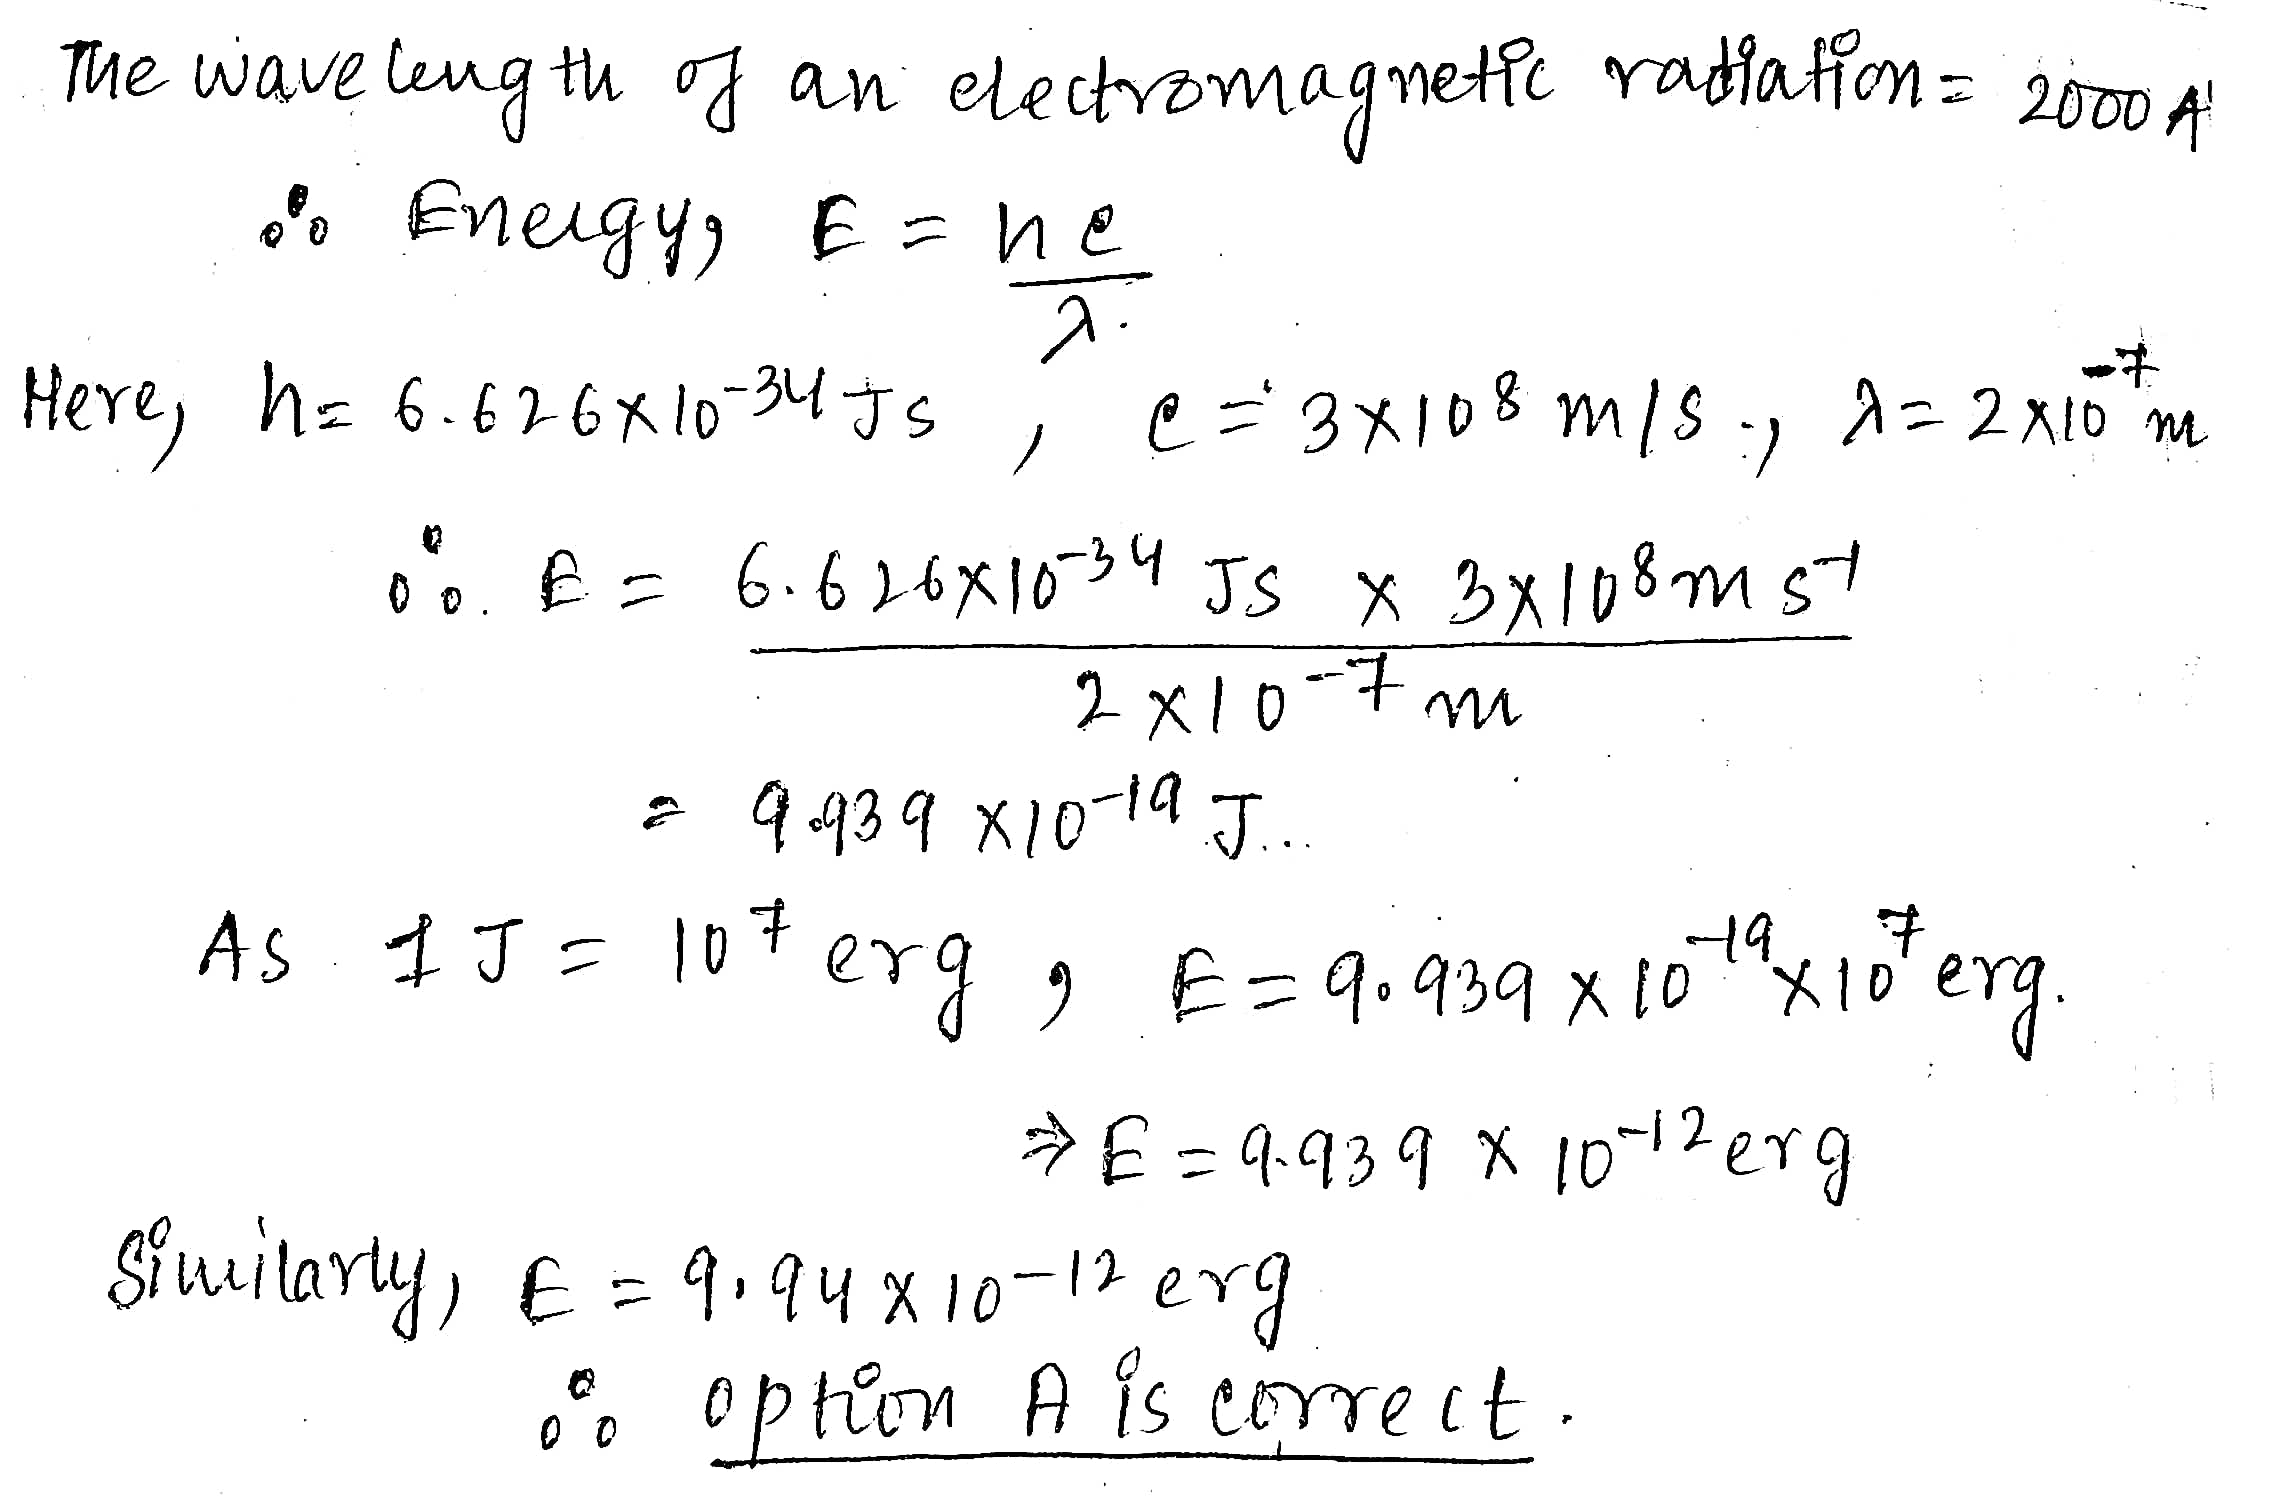 The wavelength of an electromagnetic radiation = 2000 A°
∴ Energy, E = hc
λ.
Here, h = 6.626×10⁻³⁴ Js , c = 3×10⁸ m/s., λ = 2×10⁻⁷ m
∴ E = 6.626×10⁻³⁴ Js × 3×10⁸ m s⁻¹
2×10⁻⁷ m
= 9.939 ×10⁻¹⁹ J...
As 1 J = 10⁷ erg , E = 9.939 × 10⁻¹⁹ × 10⁷ erg.
⇒ E = 9.939 × 10⁻¹² erg
Similarly, E = 9.94 × 10⁻¹² erg
∴ option A is correct.